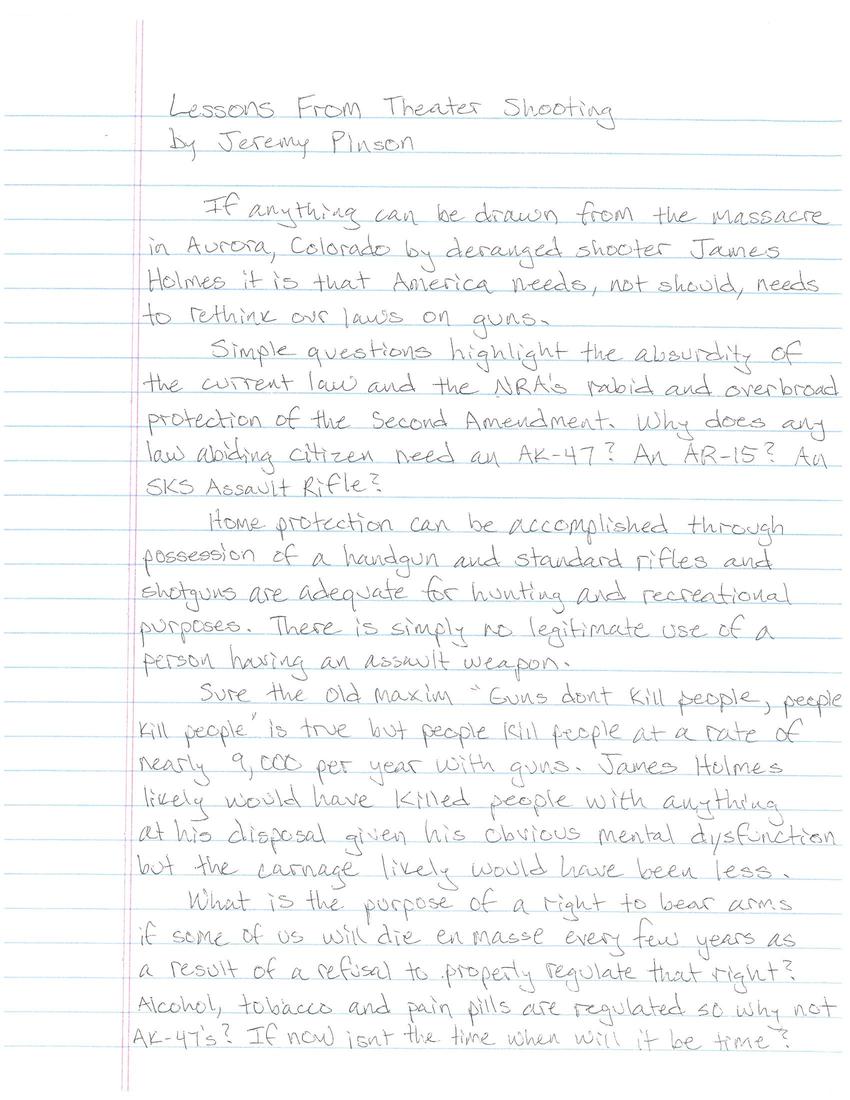 Lessons From Theater Shooting
by Jeremy Pinson
If anything can be drawn from the massacre
in Aurora, Colorado by deranged shooter James
Holmes it is that America needs, not should, needs
to rethink our laws on guns.
Simple questions highlight the absurdity of
the current law and the NRA's rabid and overbroad
protection of the Second Amendment. Why does any
law abiding citizen need an AK-47? An AR-15? An
SKS Assault Rifle?
Home protection can be accomplished through
possession of a handgun and standard rifles and
shotguns are adequate for hunting and recreational
purposes. There is simply no legitimate use of a
person having an assault weapon.
Sure the old maxim "Guns dont kill people, people
kill people" is true but people kill people at a rate of
nearly 9,000 per year with guns. James Holmes
likely would have killed people with anything
at his disposal given his obvious mental dysfunction
but the carnage likely would have been less.
What is the purpose of a right to bear arms
if some of us will die en masse every few years as
a result of a refusal to properly regulate that right?
Alcohol, tobacco and pain pills are regulated so why not
AK-47's? If now isnt the time when will it be time?